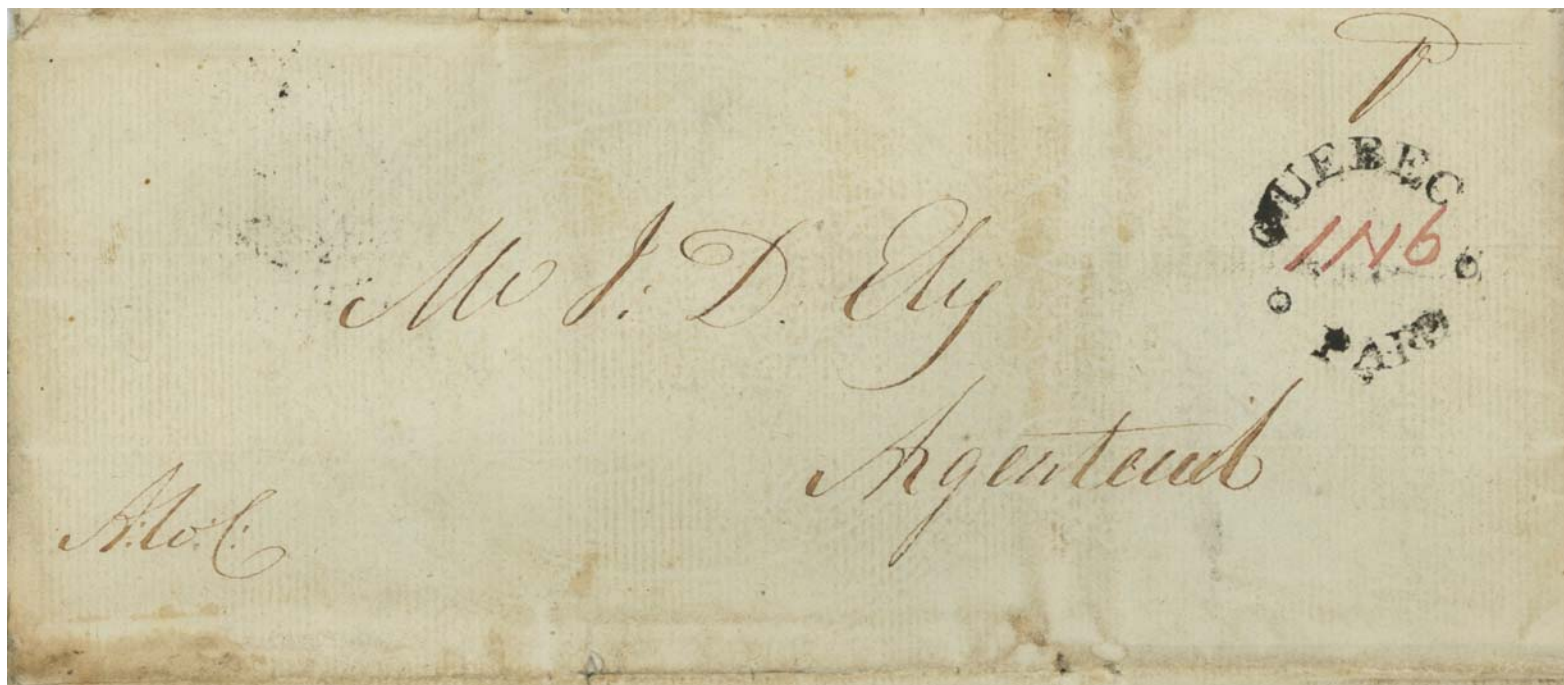 QUEBEC
1N6
PAID
Mr J. D. Ely
Argenteuil